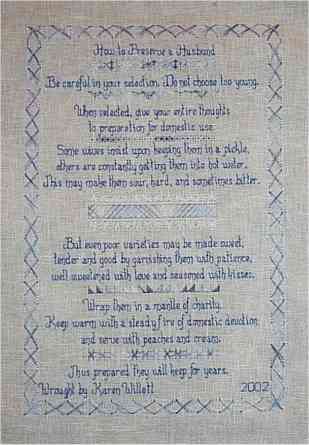 How to Preserve a Husband
Be careful in your selection. Do not choose too young.
When selected, give your entire thoughts
to preparation for domestic use.
Some wives insist upon keeping them in a pickle,
others are constantly getting them into hot water.
This may make them sour, hard, and sometimes bitter.
But even poor varieties may be made sweet,
tender and good by garnishing them with patience,
well sweetened with love and seasoned with kisses.
Wrap them in a mantle of charity.
Keep warm with a steady fire of domestic devotion
and serve with peaches and cream.
Thus prepared they will keep for years.
Wrought by Karen Willett 2002